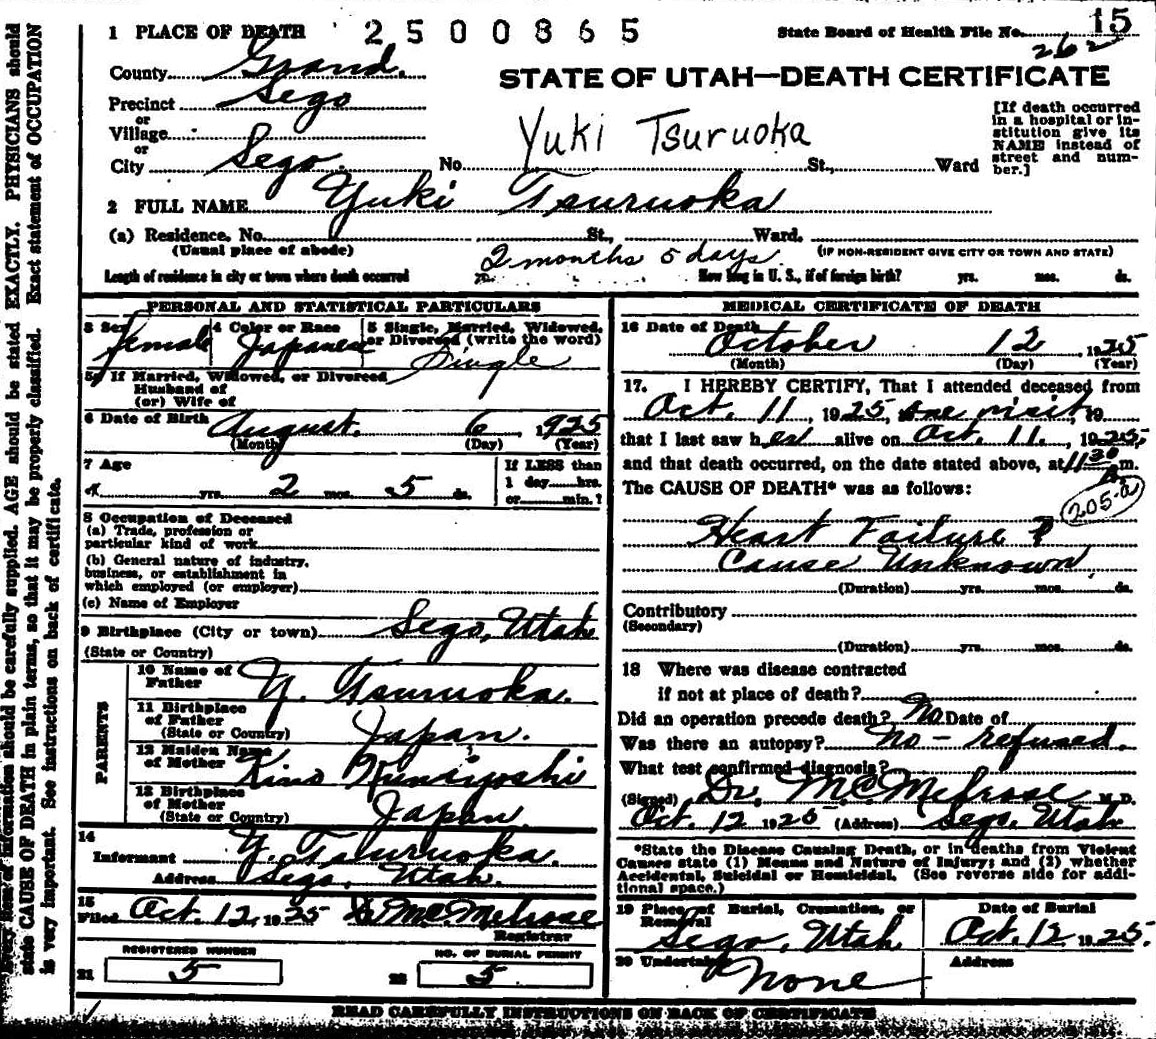 1 PLACE OF DEATH 2500865 State Board of Health File No. 15
262
County Grand.
STATE OF UTAH—DEATH CERTIFICATE
Precinct Sego
or
Village
or
City Sego No. Yuki Tsuruoka St., Ward
[If death occurred
in a hospital or in-
stitution give its
NAME instead of
street and num-
ber.]
2 FULL NAME Yuki Tsuruoka
(a) Residence. No. St., Ward.
(Usual place of abode) (IF NON-RESIDENT GIVE CITY OR TOWN AND STATE)
Length of residence in city or town where death occurred 2 months 5 days. How long in U. S., if of foreign birth? yrs. mos. ds.
PERSONAL AND STATISTICAL PARTICULARS
3 Sex female 4 Color or Race Japanese 5 Single, Married, Widowed,
or Divorced (write the word) Single
5a If Married, Widowed, or Divorced
Husband of
(or) Wife of
6 Date of Birth August. 6 1925
(Month) (Day) (Year)
7 Age yrs. 2 mos. 5 ds.
If LESS than
1 day hrs.
or min.?
8 Occupation of Deceased
(a) Trade, profession or
particular kind of work
(b) General nature of industry,
business, or establishment in
which employed (or employer)
(c) Name of Employer
9 Birthplace (City or town) Sego, Utah
(State or Country)
PARENTS
10 Name of
Father Y. Tsuruoka.
11 Birthplace
of Father
(State or Country) Japan.
12 Maiden Name
of Mother Kino Kuniyoshi
13 Birthplace
of Mother
(State or Country) Japan.
14
Informant Y. Tsuruoka.
Address Sego, Utah.
15
Filed Oct. 12, 1925 Dr. M.C. Melrose
Registrar
REGISTERED NUMBER NO. OF BURIAL PERMIT
21 5 22 5
MEDICAL CERTIFICATE OF DEATH
16 Date of Death October 12, 1925
(Month) (Day) (Year)
17. I HEREBY CERTIFY, That I attended deceased from
Oct. 11, 1925, one visit, 19
that I last saw her alive on Oct. 11, 1925,
and that death occurred, on the date stated above, at 11 30 A m.
The CAUSE OF DEATH* was as follows:
205-a
Heart Failure ?
Cause Unknown.
(Duration) yrs. mos. ds.
Contributory
(Secondary)
(Duration) yrs. mos. ds.
18 Where was disease contracted
if not at place of death?
Did an operation precede death? No Date of
Was there an autopsy? No - refused.
What test confirmed diagnosis?
(Signed) Dr. M.C. Melrose M. D.
Oct. 12 1925 (Address) Sego, Utah
*State the Disease Causing Death, or in deaths from Violent
Causes state (1) Means and Nature of Injury; and (2) whether
Accidental, Suicidal or Homicidal. (See reverse side for addi-
tional space.)
19 Place of Burial, Cremation, or
Removal Sego, Utah
Date of Burial
Oct. 12 1925.
20 Undertaker None Address
READ CAREFULLY INSTRUCTIONS ON BACK OF CERTIFICATE
information should be carefully supplied. AGE should be stated EXACTLY. PHYSICIANS should
state CAUSE OF DEATH in plain terms, so that it may be properly classified. Exact statement of OCCUPATION
is very important. See instructions on back of certificate.